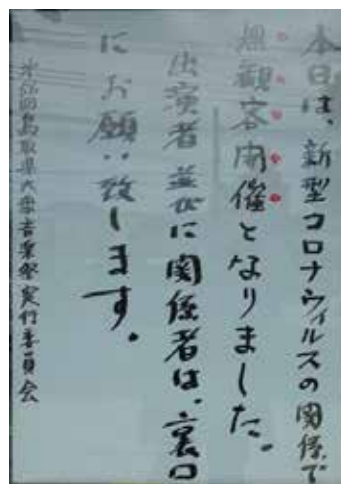 本日は、新型コロナウィルスの関係で
無観客開催となりました。
出演者並びに関係者は、裏口
にお願い致します。
鳥取県大衆音楽祭実行委員会